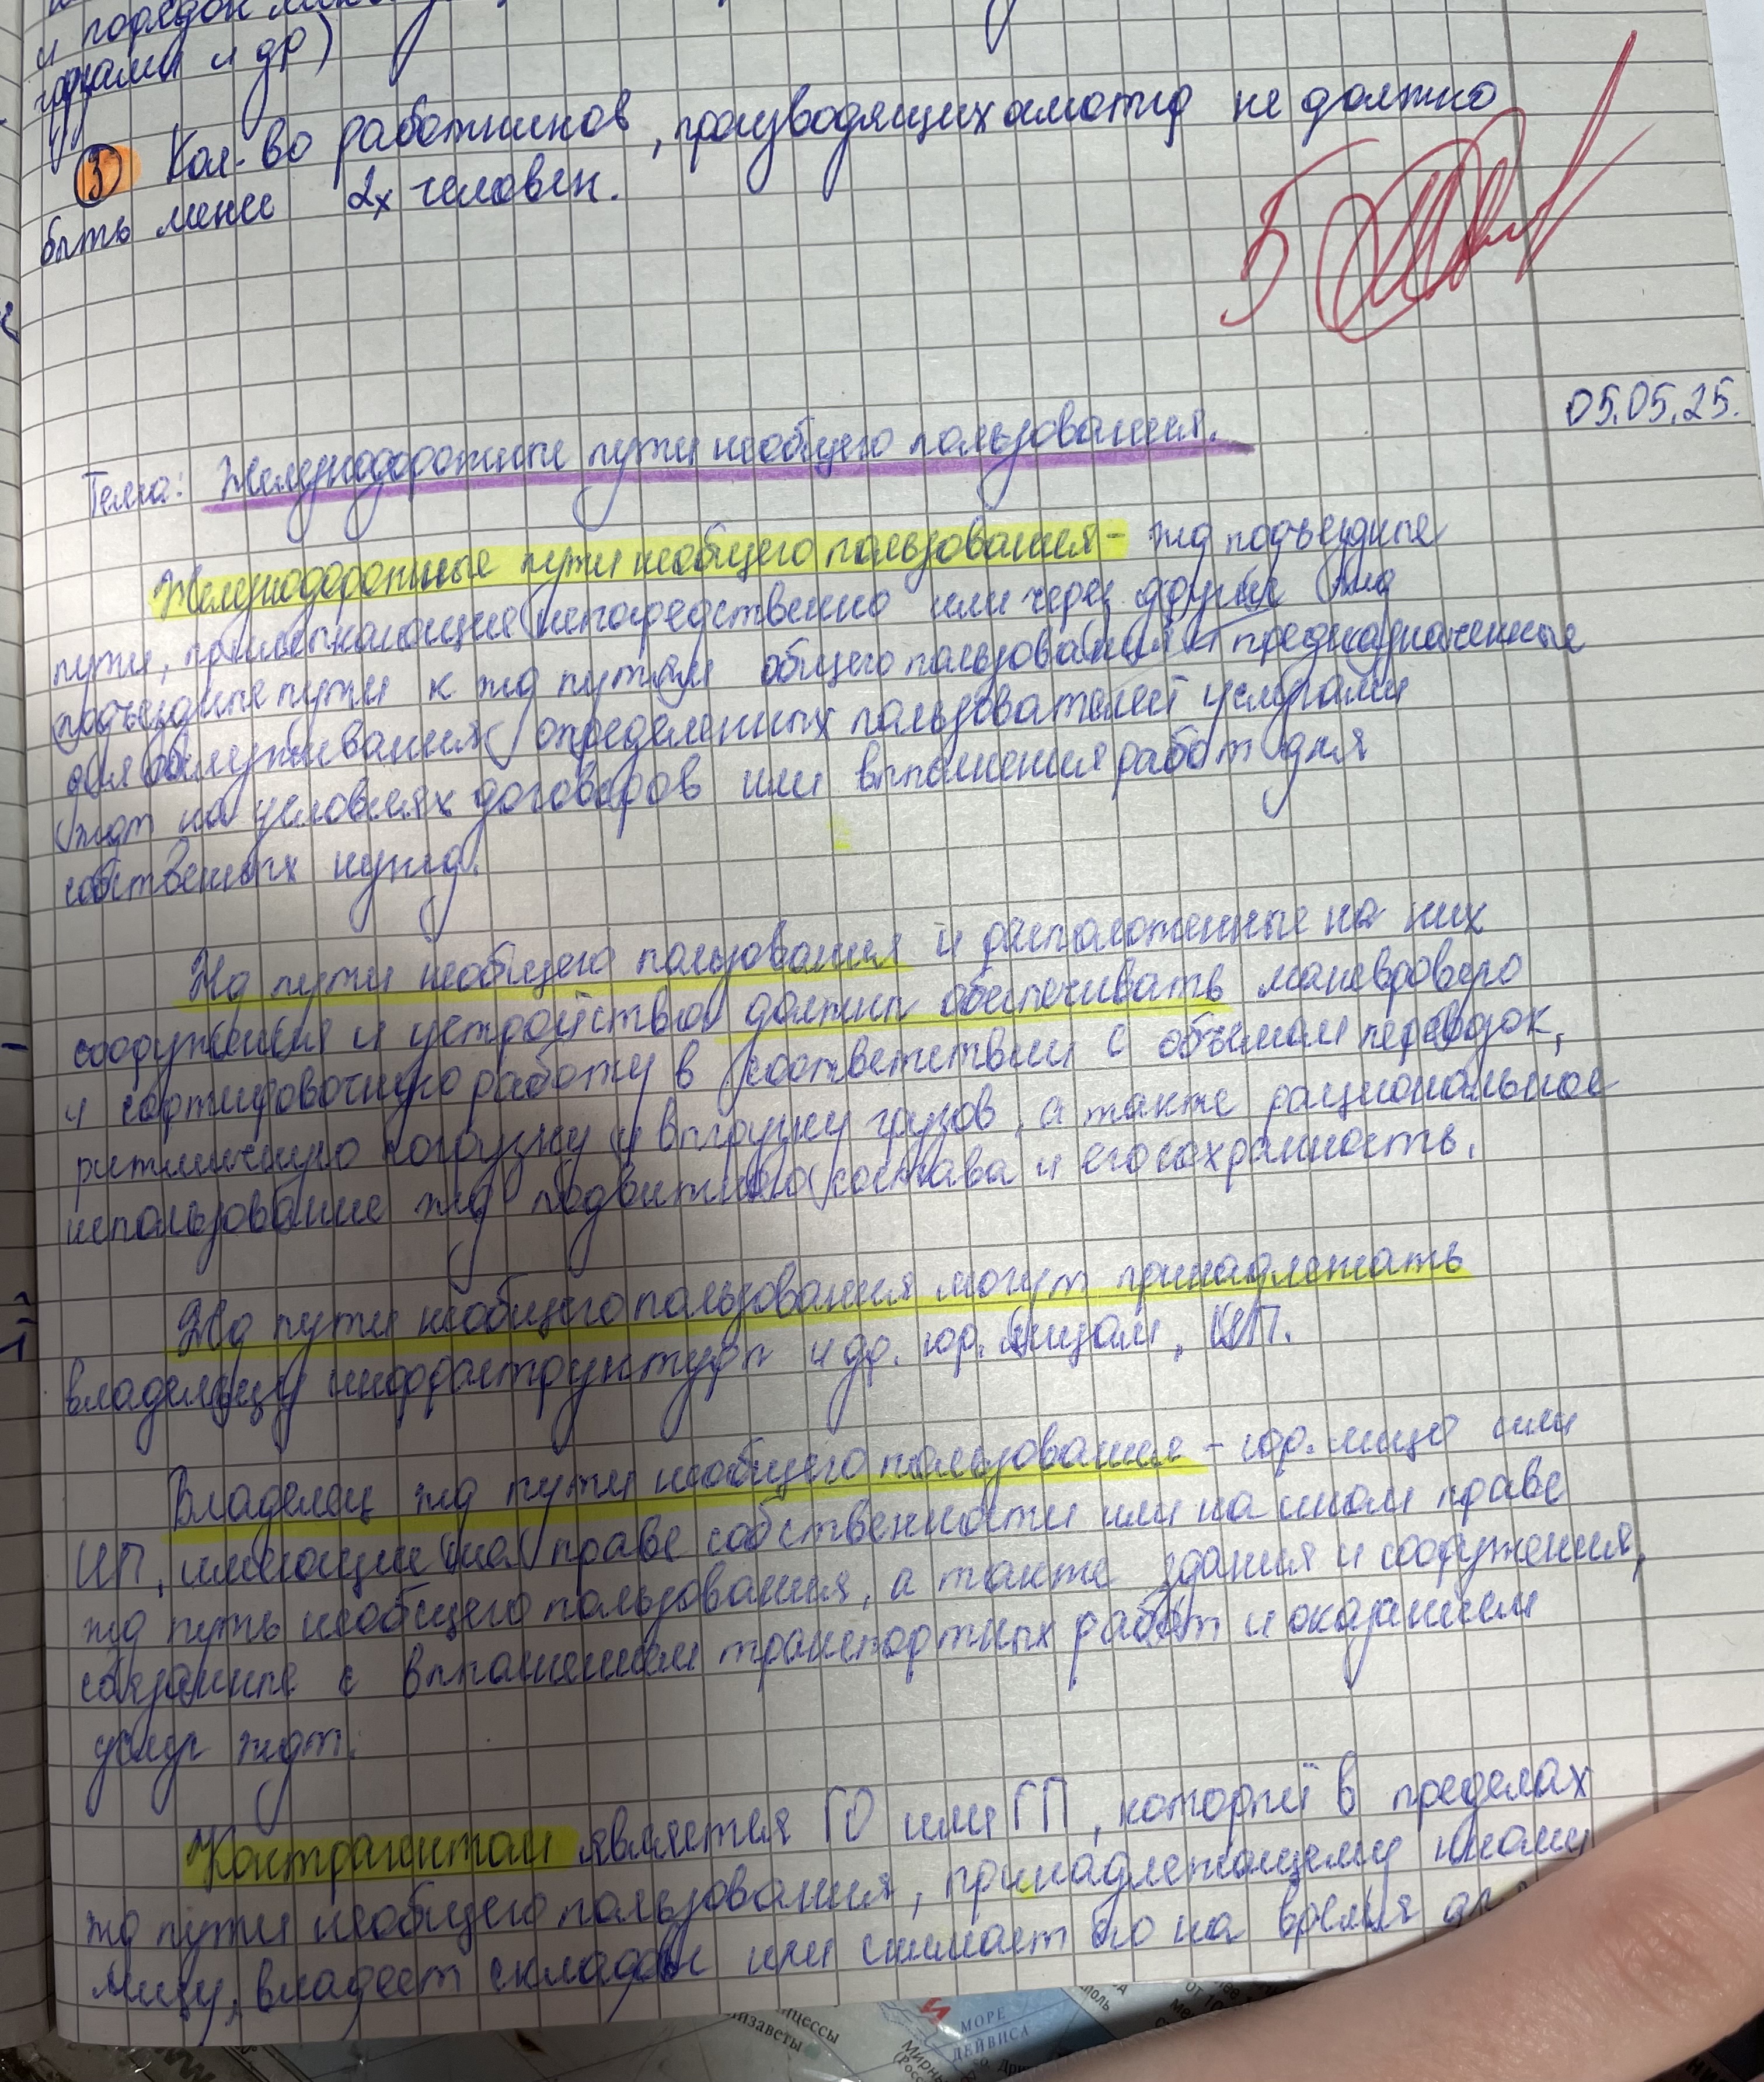 и порядок
грузами и др)
3) Кол-во работников, производящих осмотр не должно
быть менее 2х человек.
5
05.05.25.
Тема: Железнодорожные пути необщего пользования.
Железнодорожные пути необщего пользования - жд подъездные
пути, примыкающие непосредственно или через другие жд
подъездные пути к жд путям общего пользования и предназначенные
для обслуживания определенных пользователей услугами
ждт на условиях договоров или выполнения работ для
собственных нужд.
Жд пути необщего пользования и расположенные на них
сооружения и устройства должны обеспечивать маневровую
и сортировочную работу в соответствии с объемом перевозок,
ритмичную погрузку и выгрузку грузов, а также рациональное
использование жд подвижного состава и его сохранность.
Жд пути необщего пользования могут принадлежать
владельцу инфраструктуры и др. юр. лицам, ИП.
Владелец жд пути необщего пользования - юр. лицо или
ИП, имеющие на праве собственности или на ином праве
жд путь необщего пользования, а также здания и сооружения,
связанные с выполнением транспортных работ и оказанием
услуг ждт.
Контрагентом является ГО или ГП, который в пределах
жд пути необщего пользования, принадлежащему иному
лицу, владеет складом или снимает его на время
МОРЕ
ДЕЙВИСА